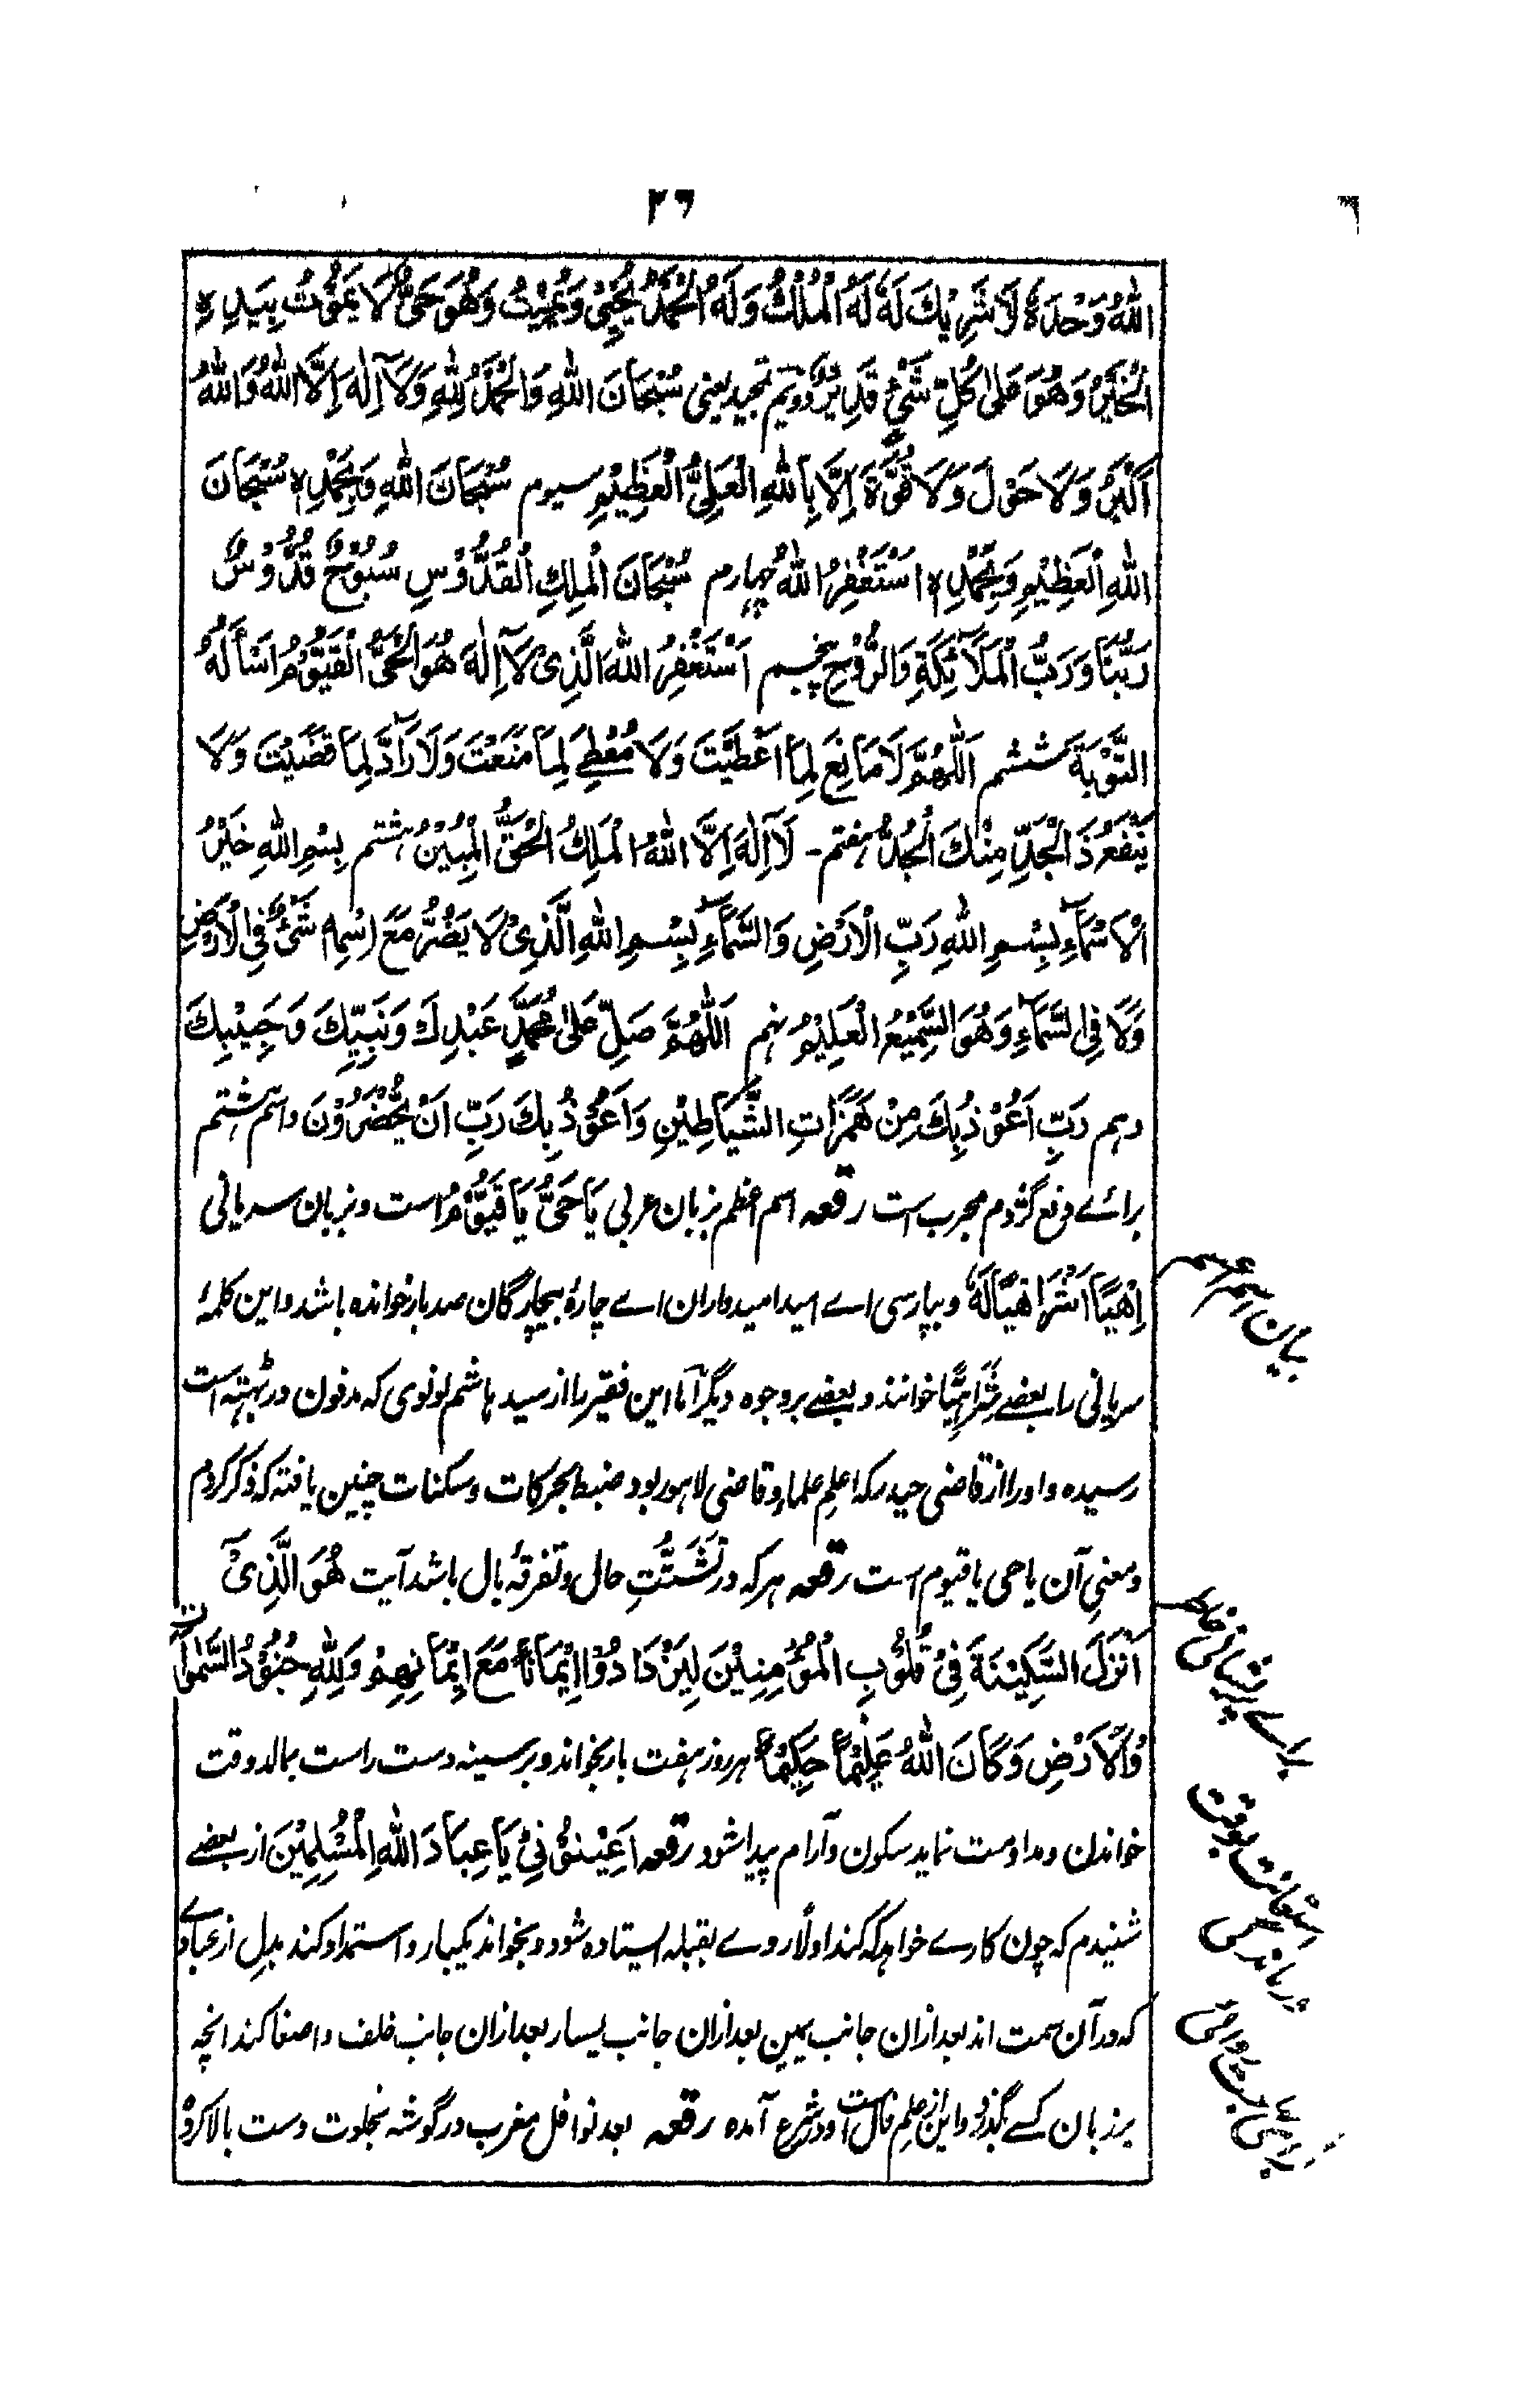 ۲۶
اللهُ وَحْدَهٗ لَا شَرِيْكَ لَهٗ لَهُ الْمُلْكُ وَلَهُ الْحَمْدُ يُحْيِىْ وَيُمِيْتُ وَهُوَ حَىٌّ لَا يَمُوْتُ بِيَدِهِ
الْخَيْرُ وَهُوَ عَلٰى كُلِّ شَىْءٍ قَدِيْرٌ دویم تمجید یعنی سُبْحَانَ اللهِ وَالْحَمْدُ لِلّٰهِ وَلَآ اِلٰهَ اِلَّا اللهُ وَاللهُ
اَكْبَرُ وَلَا حَوْلَ وَلَا قُوَّةَ اِلَّا بِاللهِ الْعَلِىِّ الْعَظِيْمِ سیوم سُبْحَانَ اللهِ وَبِحَمْدِهٖ سُبْحَانَ
اللهِ الْعَظِيْمِ وَبِحَمْدِهٖ اَسْتَغْفِرُ اللهَ چهارم سُبْحَانَ الْمَلِكِ الْقُدُّوْسِ سُبُّوْحٌ قُدُّوْسٌ
رَبُّنَا وَرَبُّ الْمَلَآئِكَةِ وَالرُّوْحِ پنجم اَسْتَغْفِرُ اللهَ الَّذِىْ لَآ اِلٰهَ هُوَ الْحَىُّ الْقَيُّوْمُ اَسْأَلُهُ
التَّوْبَةَ ششم اَللّٰهُمَّ لَا مَانِعَ لِمَا اَعْطَيْتَ وَلَا مُعْطِىَ لِمَا مَنَعْتَ وَلَا رَآدَّ لِمَا قَضَيْتَ وَلَا
يَنْفَعُ ذَا الْجَدِّ مِنْكَ الْجَدُّ هفتم - لَآ اِلٰهَ اِلَّا اللهُ الْمَلِكُ الْحَقُّ الْمُبِيْنُ هشتم بِسْمِ اللهِ خَيْرِ
الْاَسْمَآءِ بِسْمِ اللهِ رَبِّ الْاَرْضِ وَالسَّمَآءِ بِسْمِ اللهِ الَّذِىْ لَا يَضُرُّ مَعَ اسْمِهٖ شَىْءٌ فِى الْاَرْضِ
وَلَا فِى السَّمَآءِ وَهُوَ السَّمِيْعُ الْعَلِيْمُ نهم اَللّٰهُمَّ صَلِّ عَلٰى مُحَمَّدٍ عَبْدِكَ وَنَبِيِّكَ وَحَبِيْبِكَ
دهم رَبِّ اَعُوْذُ بِكَ مِنْ هَمَزَاتِ الشَّيَاطِيْنِ وَاَعُوْذُ بِكَ رَبِّ اَنْ يَّحْضُرُوْنَ واسم هشتم
برائے دفع گژدم مجرب است رقعه اسم اعظم بزبان عربی يَا حَىُّ يَا قَيُّوْمُ است و بزبان سریانی
اِهْيًا اَشْرَاهِيًا لَهٗ و بپارسی اے امید امیدواران اے چارۀ بیچارگان صد بار خوانده باشد و این کلمۀ
سریانی را بعضے شَرَاهِيًّا خوانند و بعضے بر وجوه دیگر آما این فقیر را از سید هاشم لونوی که مدفون در تهته است
رسیده و او را از قاضی حیدر که اعلم علما و قاضی لاهور بود ضبط بحرکات و سکنات چنین یافته که ذکر کردم
و معنی آن یا حی یا قیوم است رقعه هر که در تَشَتُّتِ حال و تفرقۀ بال باشد آیت هُوَ الَّذِىْٓ
اَنْزَلَ السَّكِيْنَةَ فِىْ قُلُوْبِ الْمُؤْمِنِيْنَ لِيَزْدَادُوْا اِيْمَانًا مَّعَ اِيْمَانِهِمْ وَلِلّٰهِ جُنُوْدُ السَّمٰوَاتِ
وَالْاَرْضِ وَكَانَ اللهُ عَلِيْمًا حَكِيْمًا هر روز هفت بار بخواند و بر سینه دست راست بمالد وقت
خواندن و مداومت نماید سکون و آرام پیدا شود رقعه اَعِيْنُوْنِىْ يَا عِبَادَ اللهِ الْمُسْلِمِيْنَ از بعضے
شنیدم که چون کارے خواهد که کند اولاً روے بقبله ایستاده شود و بخواند یکبار و استمداد کند بدل از عبادے
که در آن سمت اند بعد ازان جانب یمین بعد ازان جانب یسار بعد ازان جانب خلف و اصغا کند انچه
بر زبان کسے بگذرد و این از علم فال است و در شرع آمده رقعه بعد نوافل مغرب در گوشه بخلوت دست بالا کرده
بیان اسم اعظم
براے پریشانی خاطر
استعانت بوقت
درماندگی